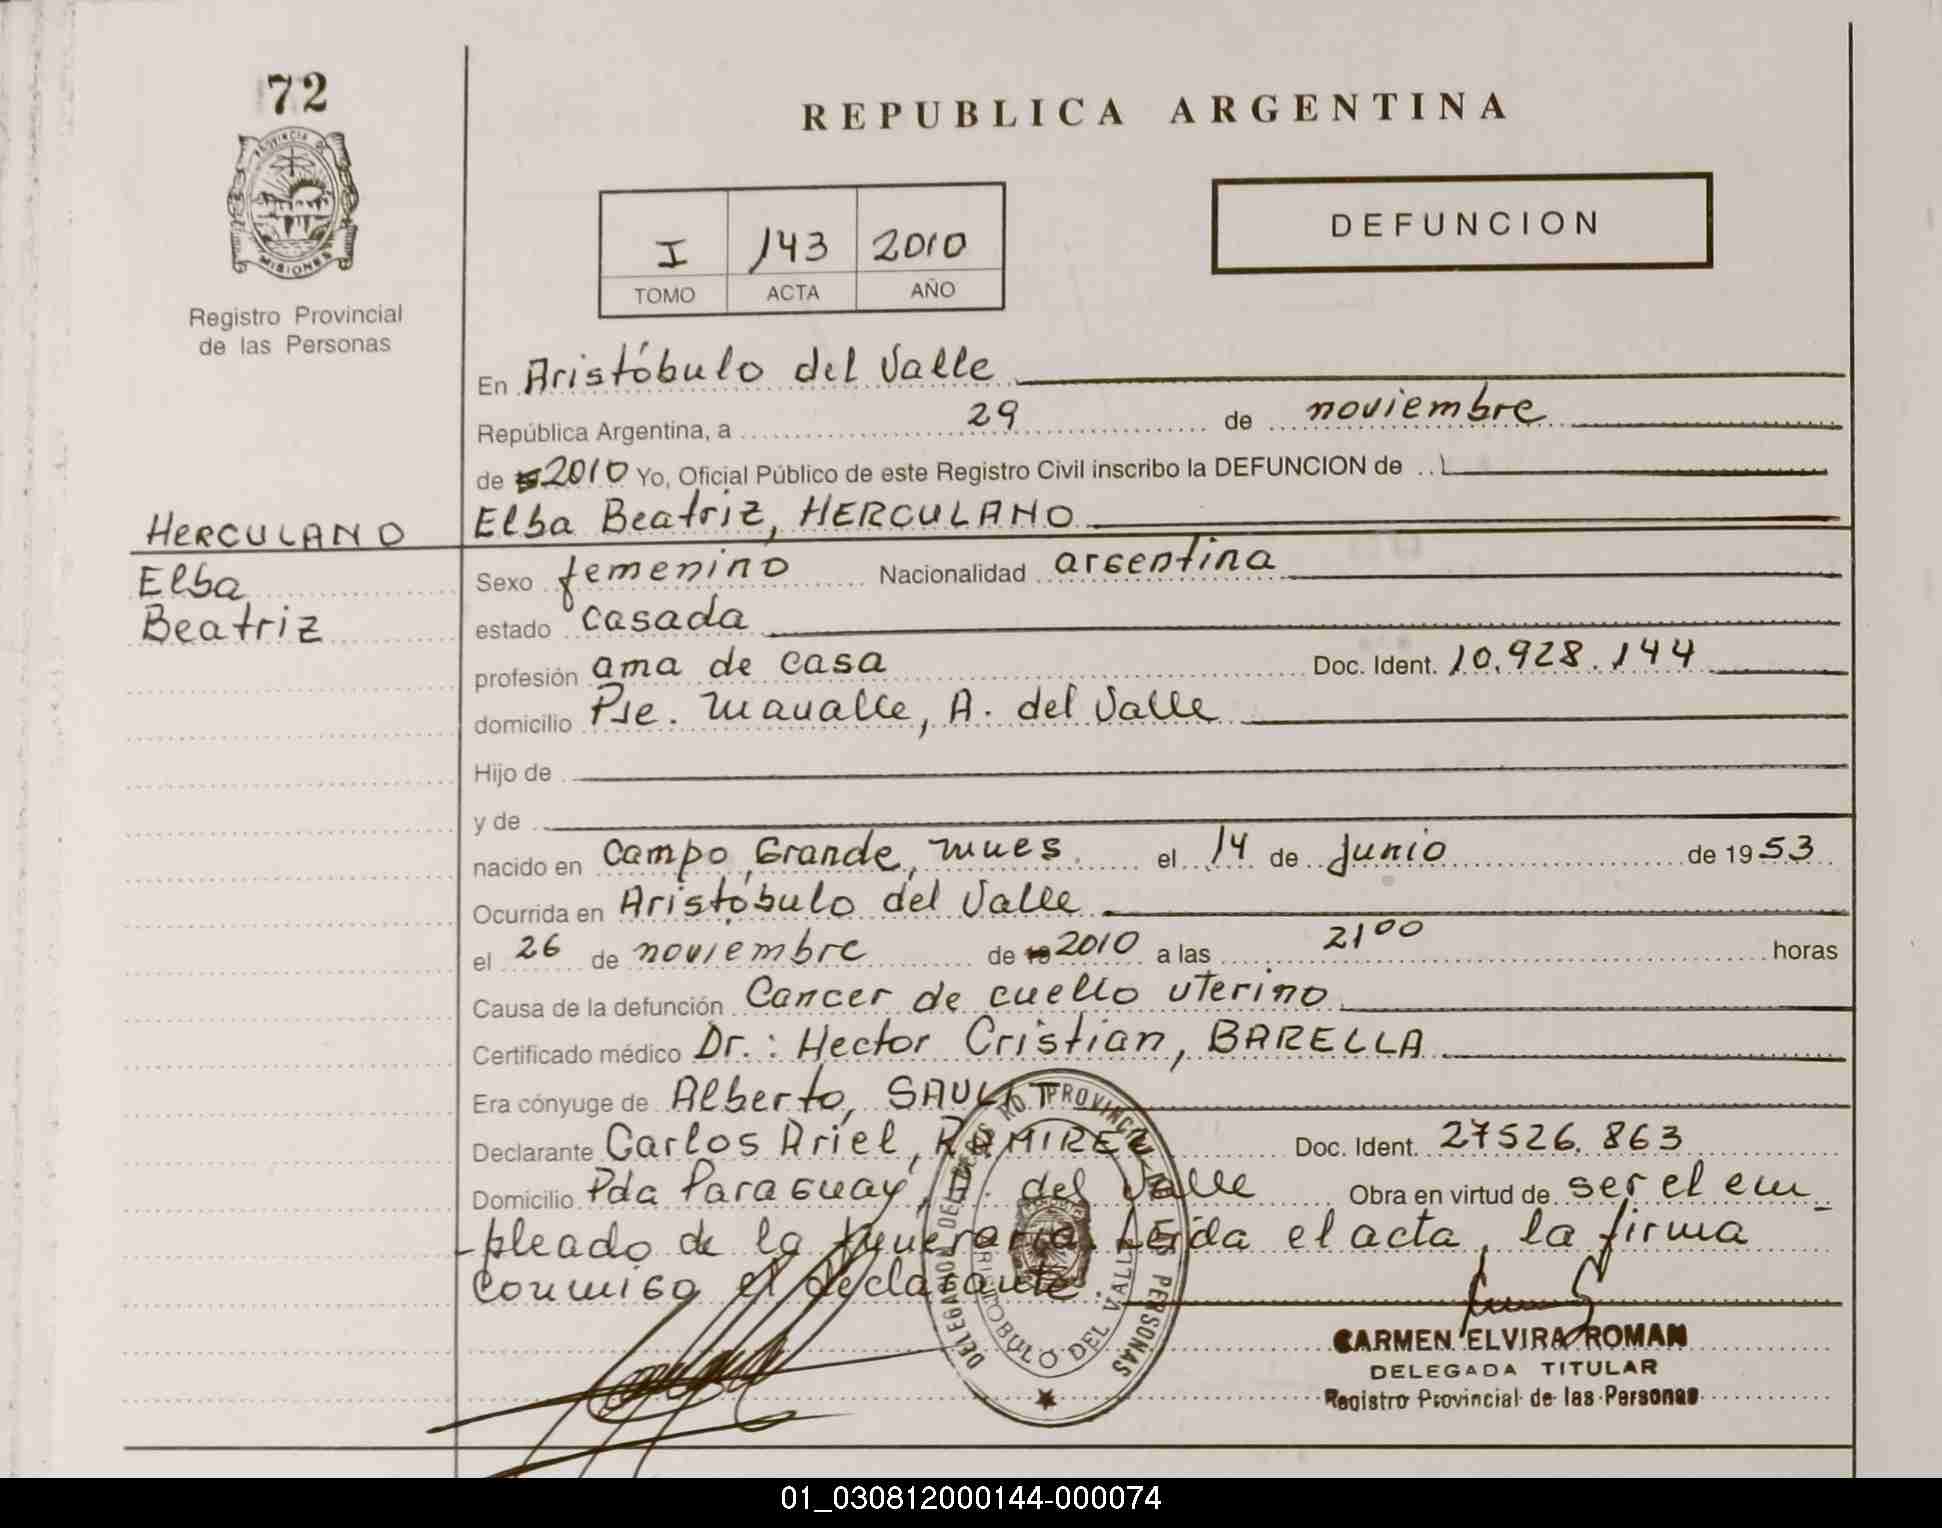 72
PROVINCIA DE
MISIONES
Registro Provincial
de las Personas
REPUBLICA ARGENTINA
I 143 2010
TOMO ACTA AÑO
DEFUNCION
En Aristóbulo del Valle
República Argentina, a 29 de noviembre
de 2010 Yo, Oficial Público de este Registro Civil inscribo la DEFUNCION de
HERCULANO
Elba
Beatriz
Elba Beatriz, HERCULANO
Sexo femenino Nacionalidad argentina
estado casada
profesión ama de casa Doc. Ident. 10.928.144
domicilio Pje. Mavalle, A. del Valle
Hijo de
y de
nacido en Campo Grande, Mnes el 14 de junio de 1953
Ocurrida en Aristóbulo del Valle
el 26 de noviembre de 2010 a las 21 00 horas
Causa de la defunción Cancer de cuello uterino
Certificado médico Dr.: Hector Cristian, BARELLA
Era cónyuge de Alberto, SAULIT
Declarante Carlos Ariel, RAMIREZ Doc. Ident. 27526.863
Domicilio Pda Paraguay, A. del Valle Obra en virtud de ser el em
-pleado de la funeraria. Leída el acta, la firma
conmigo el declarante.
DELEGADO DEL REGISTRO PROVINCIAL DE LAS PERSONAS
ARISTOBULO DEL VALLE
CARMEN ELVIRA ROMAN
DELEGADA TITULAR
Registro Provincial de las Personas
01_030812000144-000074